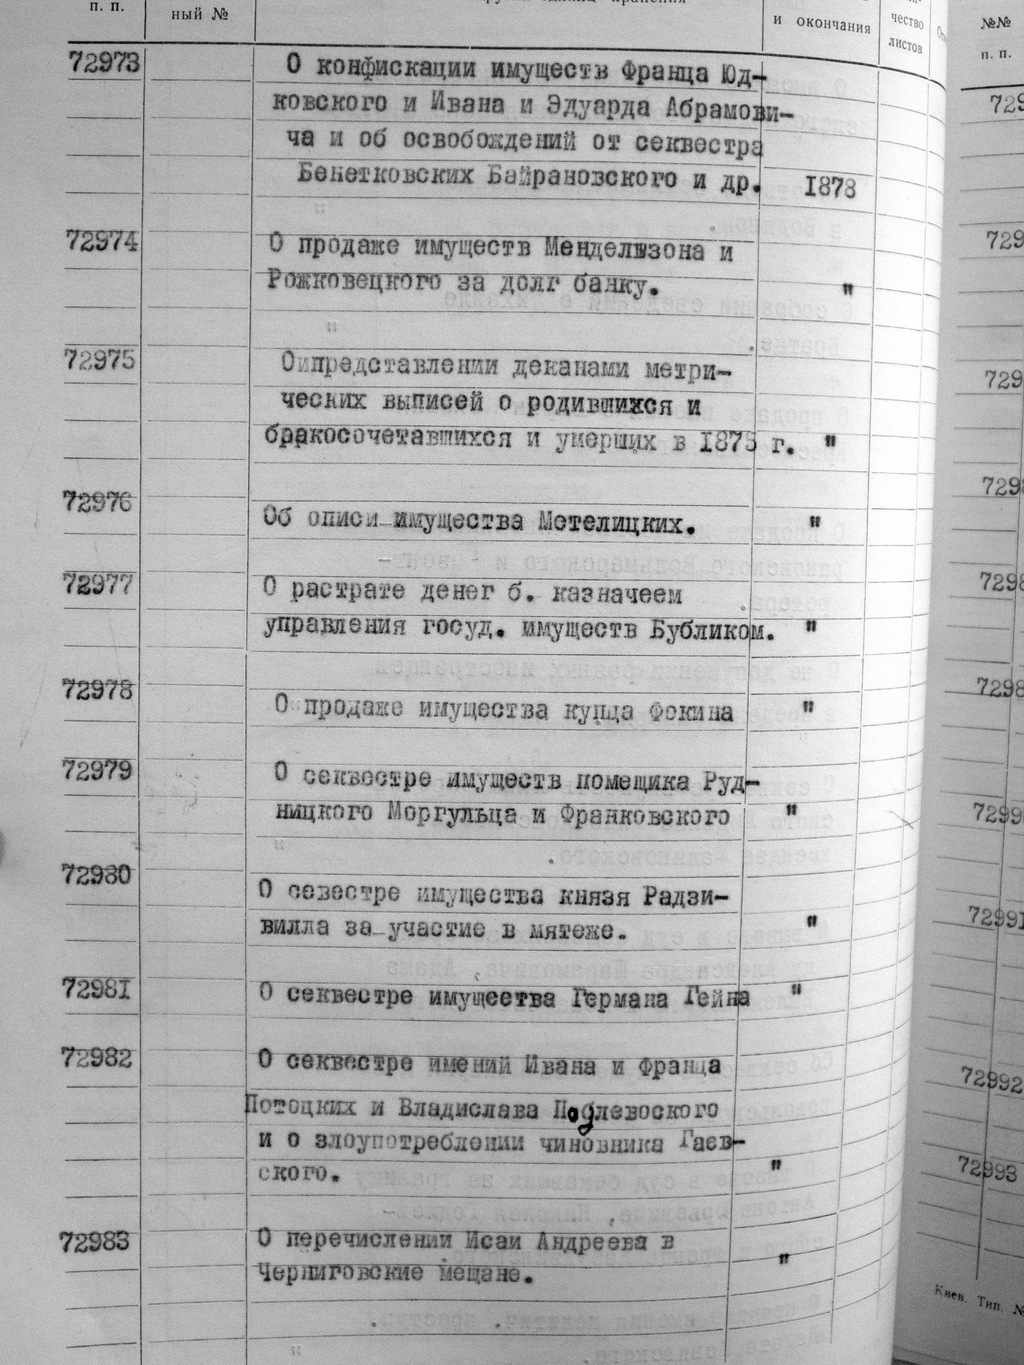 п. п.
ный №
и окончания
чество
листов
№№
п. п.
72973 О конфискации имуществ Франца Юд-
ковского и Ивана и Эдуарда Абрамови-
ча и об освобождений от секвестра
Бенетковских Байрановского и др. 1878
72974 О продаже имуществ Мендельзона и
Рожковецкого за долг банку. "
72975 О представлении деканами метри-
ческих выписей о родившихся и
бракосочетавшихся и умерших в 1875 г. "
72976 Об описи имущества Метелицких. "
72977 О растрате денег б. казначеем
управления госуд. имуществ Бубликом. "
72978 О продаже имущества купца Фокина "
72979 О секвестре имуществ помещика Руд-
ницкого Моргульца и Франковского "
72980 О севестре имущества князя Радзи-
вилла за участие в мятеже. "
72981 О секвестре имущества Германа Гейна "
72982 О секвестре имений Ивана и Франца
Потоцких и Владислава Подлевоского
и о злоупотреблении чиновника Гаев-
ского. "
72983 О перечислении Исаи Андреева в
Черниговские мещане. "
72991
72992
72993
Киев. Тип.